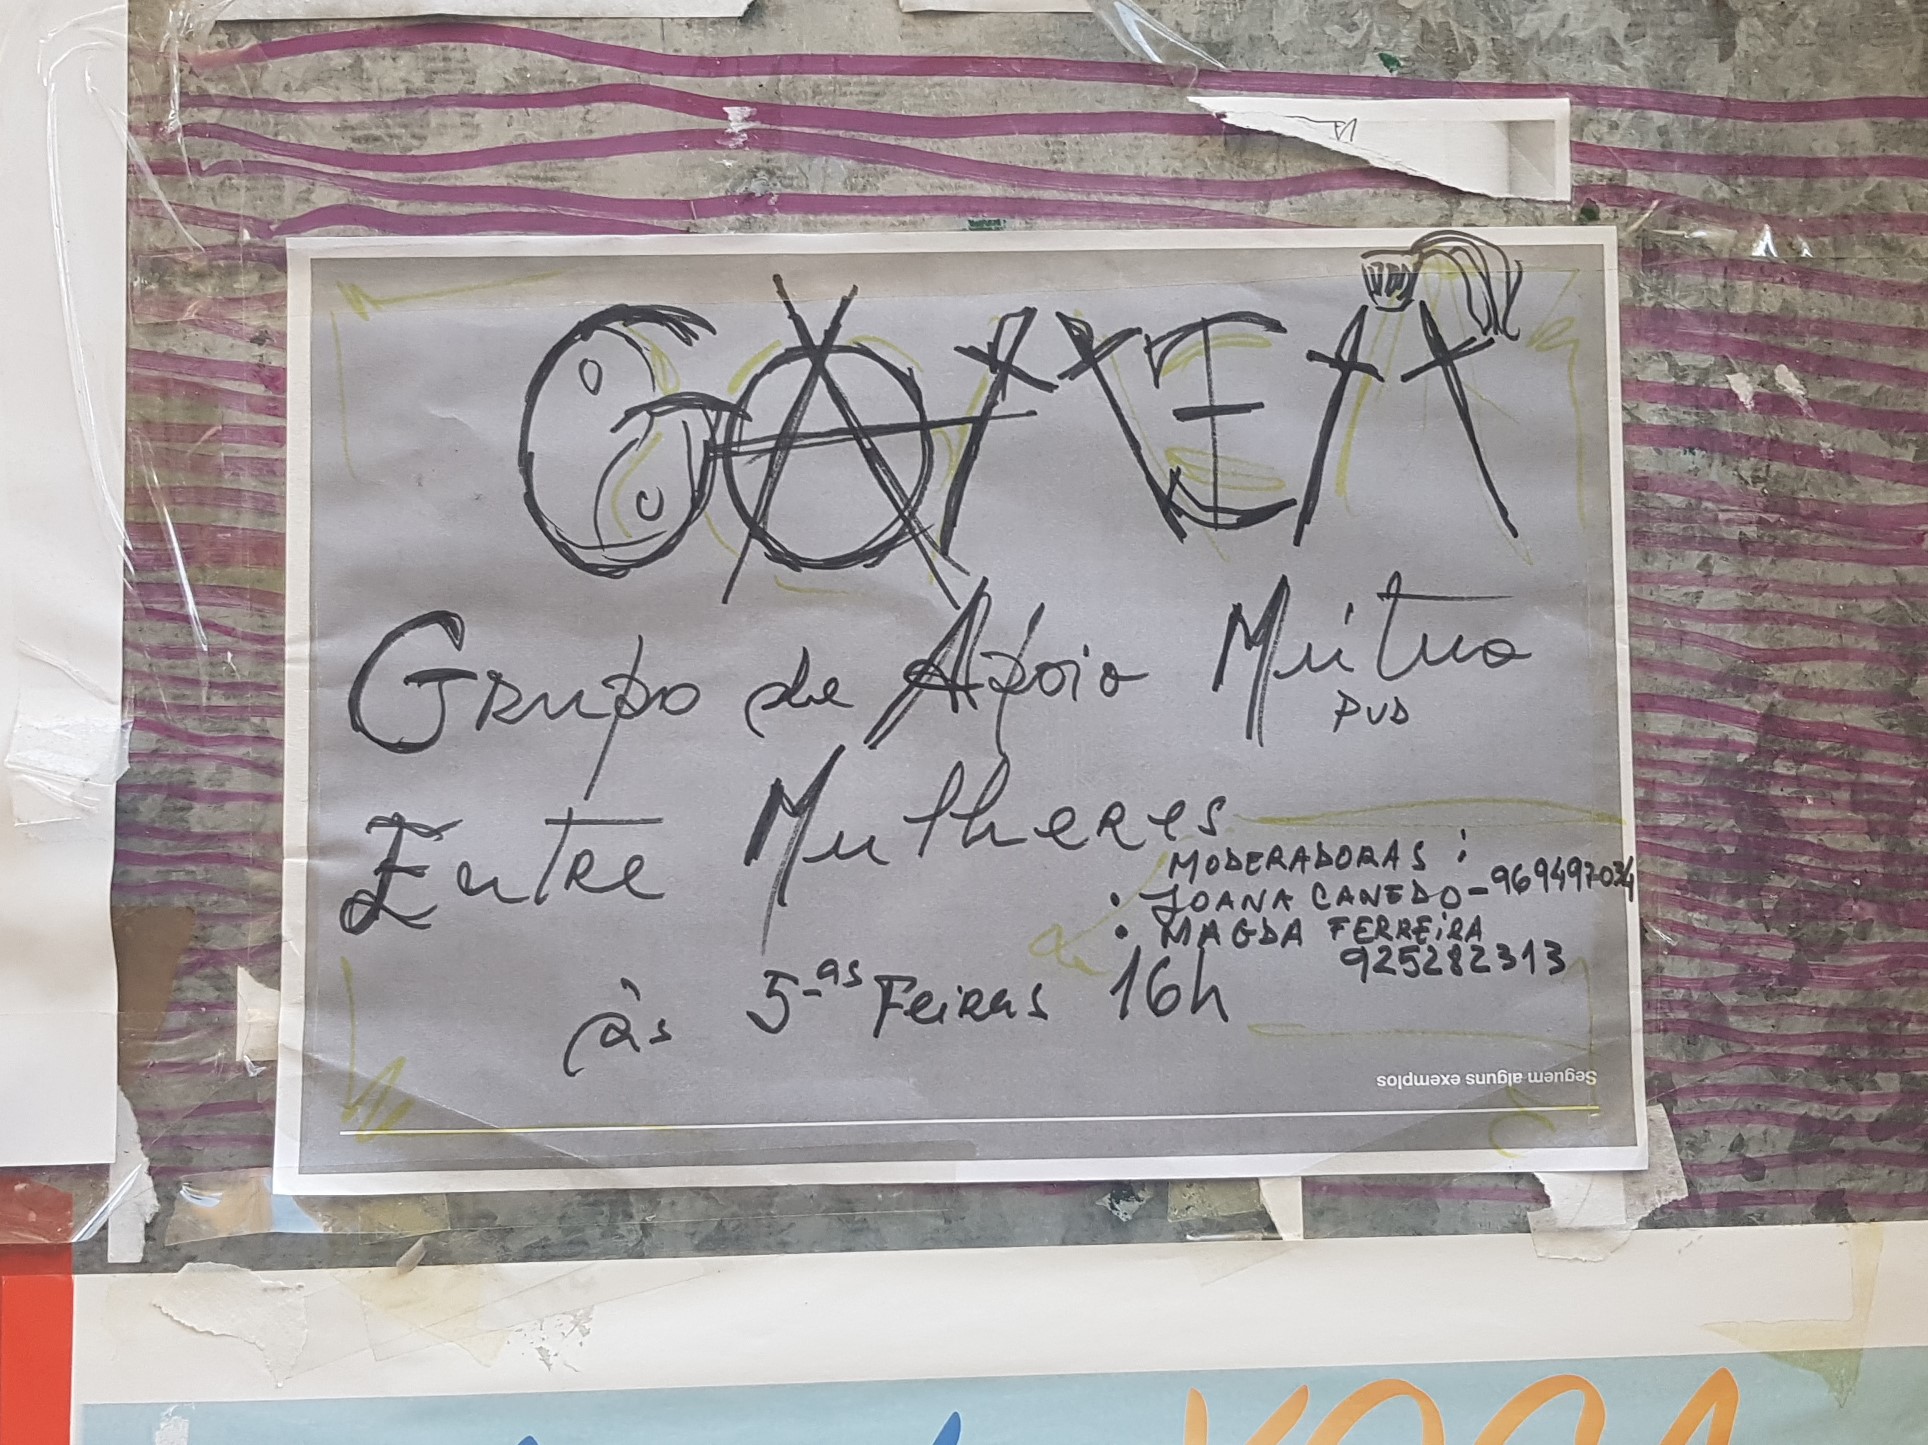 GAMEM
Grupo de Apoio Mútuo
PVD
Entre Mulheres
MODERADORAS:
• JOANA CANEDO - 969497034
• MAGDA FERREIRA
925282313
às 5-as Feiras 16h
Seguem alguns exemplos